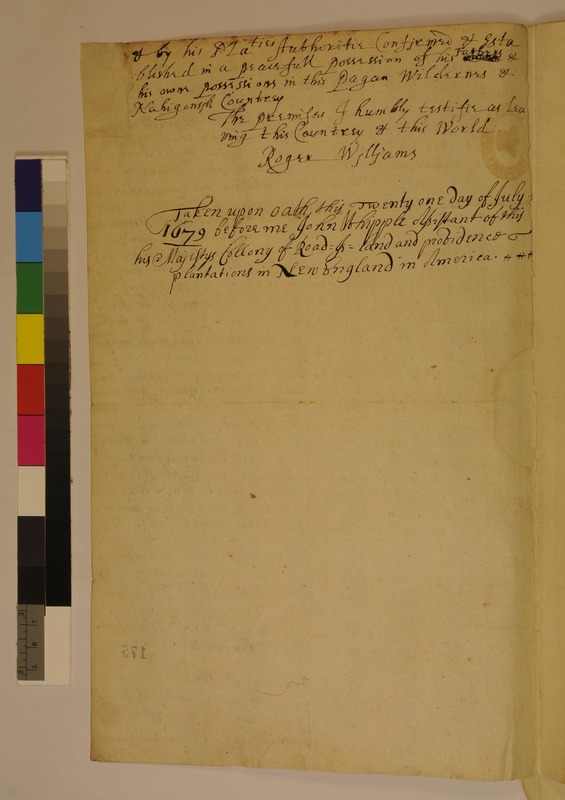 & by his Maties Authoritie Confirmed & Esta
blished in a peacefull possession of his Fathers &
his owne possessions in this Pagan Wildernes &
Nahigansik Countrey
The premises I humbly testifie as Lea
ving this Countrey & this World
Roger Williams
Taken upon oath this Twenty one day of July:
1679 before me John Whipple Assistant of this
his Majestys Collony of Road=Is=land and providence
plantations in New England in America.
175